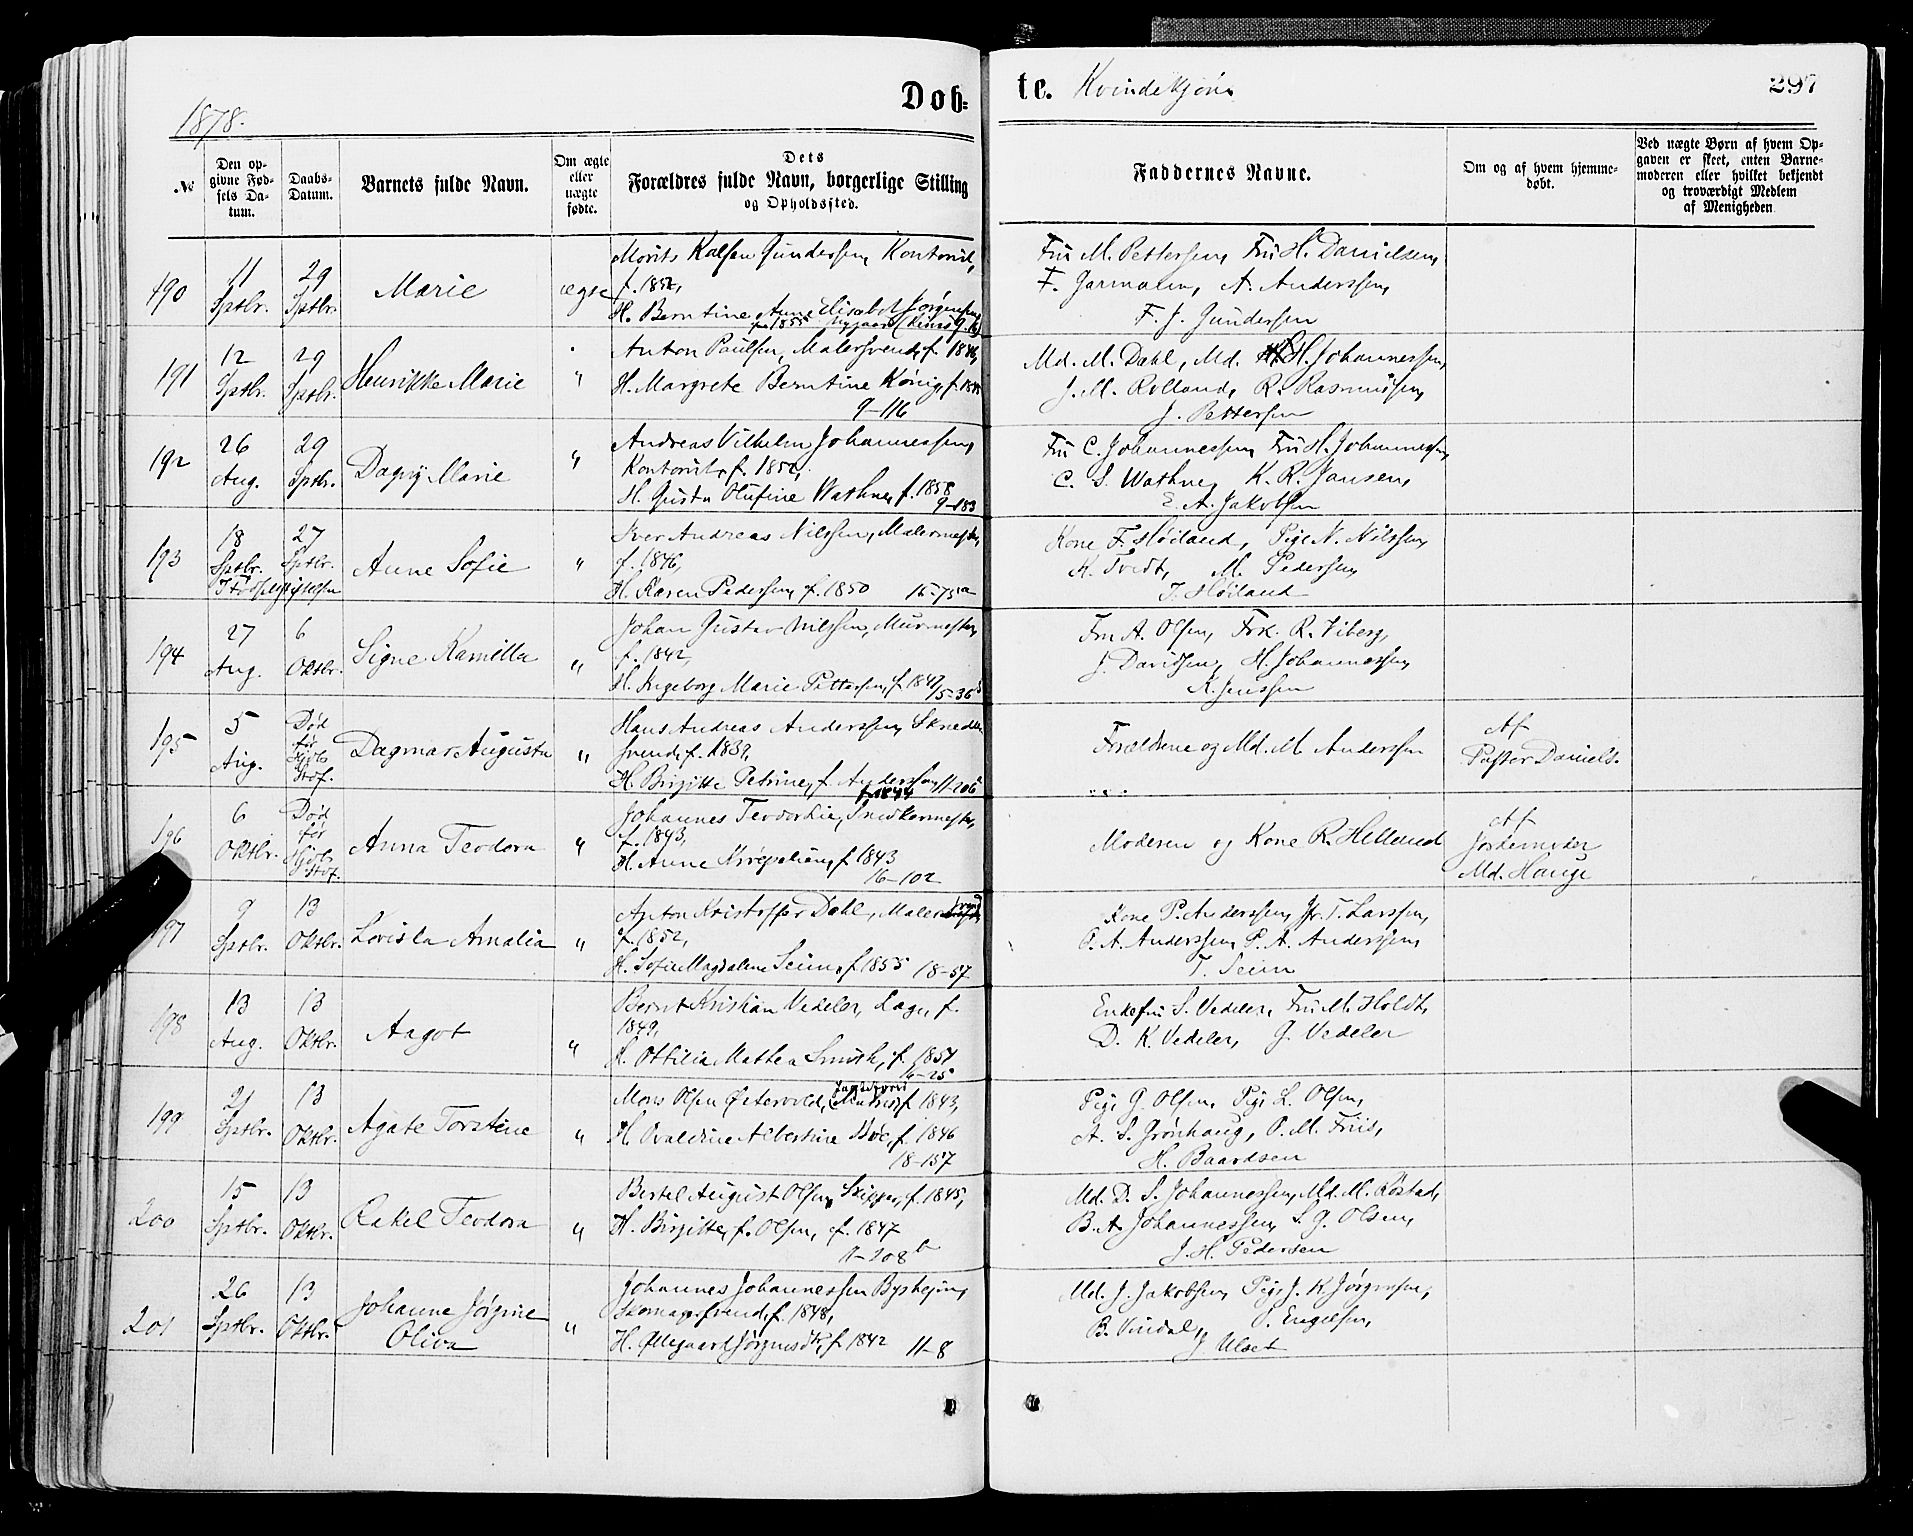 1878.
Døb-
te. Kvindekjøn
297
№
Den op-
givne Fød-
sels Da-
tum.
Daabs-
Datum.
Barnets fulde Navn.
Om ægte
eller
uægte
fødte.
Dets
Forældres fulde Navn, borgerlige Stilling
og Opholdssted.
Faddernes Navne.
Om og af hvem hjemme-
døbt.
Ved uægte Børn af hvem Op-
gaven er skeet, enten Barne-
moderen eller hvilket bekjendt
og troværdigt Medlem
af Menigheden
190
11
Sptbr.
29
Sptbr.
Marie
ægte
Morits Kalsen Gundersen, Kontorist,
f. 1852,
H. Berntine Anne Elisabet Jørgensen
f. 1855
Fru M. Pettersen, Fru H. Danielsen,
F. Jarmann, A. Anderssen,
F. J. Gundersen
191
12
Sptbr.
29
Sptbr.
Henrikke Marie
"
Anton Paulsen, Malersvend, f. 1846,
H. Margrete Berntine König, f.
9-116
Md. M. Dahl, Md. H. Johannessen,
J. M. Rolland, R. Rasmussen,
J. Pettersen
192
26
Aug.
29
Sptbr.
Dagny Marie
"
Andreas Vilhelm Johannessen,
Kontorist, f. 1852,
H. Gusta Olufine Wathne, f. 1858
9-183
Fru C. Johannessen, Fru H. Johannessen,
C. S. Wathne, K. R. Jansen,
E. A. Jakobsen
193
18
Sptbr.
27
Sptbr.
I Fødselsstiftelsen
Anne Sofie
"
Iver Andreas Nilssen, Malermester,
f. 1846,
H. Karen Pedersen, f. 1850 16-75a
Kone F. Høiland, Pige N. Nilssen,
A. Tvedt, M. Pedersen,
T. Høiland
194
27
Aug.
6
Oktbr.
Signe Kamilla
"
Johan Gustav Nilssen, Murmester,
f. 1842,
H. Ingeborg Marie Pettersen, f. 1847
Fru A. Olsen, Frk. R. Viberg,
J. Davidsen, H. Johannessen,
K. Jenssen
195
5
Aug.
Død
før
Kjb
Stof.
Dagmar Augusta
"
Hans Andreas Anderssen, Skrædder
svend, f. 1839,
H. Birgitte Petrine, f. Anderssen, 11-206
f. 1844
Forældrene og Md. M. Anderssen
Af
Pastor Daniels.
196
6
Oktbr.
Død
før
Stof.
Anna Teodora
"
Johannes Teodor Lie, Snedkermester,
f. 1843,
H. Anne f. 1843
16-102
Moderen og Kone R. Helland
Af
Jordemoder
Md. Hauge
197
9
Sptbr.
13
Oktbr.
Lovisla Amalia
"
Anton Kristoffer Dahl, Malersvend
f. 1852,
H. Sofie Magdalene Seim, f. 1855 18-57
Kone P. Anderssen, Jfr. T. Larssen,
O. A. Anderssen, P. A. Anderssen,
T. Seim
198
13
Aug.
13
Oktbr.
Aagot
"
Bernt Kristian Vedeler, Lage, f.
1849,
H. Ottilia Mathea Smith, f. 1854
16-25
Enkefru S. Vedeler, Fru M. Holdt,
D. K. Vedeler, G. Vedeler
199
21
Sptbr.
13
Oktbr.
Agate Torstine
"
Mons Olsen Østervold, Matros, f. 1843,
H. Ovaldine Albertine Bøe, f. 1846
18-157
Pige G. Olsen, Pige L. Olsen,
A. S. Grønhaug, O. M. Friis,
H. Baardsen
200
15
Sptbr.
13
Oktbr.
Rakel Teodora
"
Bertel August Olsen, Skipper, f. 1845,
H. Birgitte, f. Olsen, f. 1847
11-208b
Md. D. S. Johannessen, Md. M. Røstad,
B. A. Johannessen, S. G. Olsen,
J. H. Pedersen
201
26
Sptbr.
13
Oktbr.
Johanne Jørgine
Oliva
"
Johannes Johannessen Byshejm,
Skomagersvend, f. 1848,
H. Øllegaard Jørgensdtr, f. 1842 11-8
Md. J. Jakobsen, Pige J. K. Jørgensen,
B. Vindal, O. Engelsen,
J. Ulset